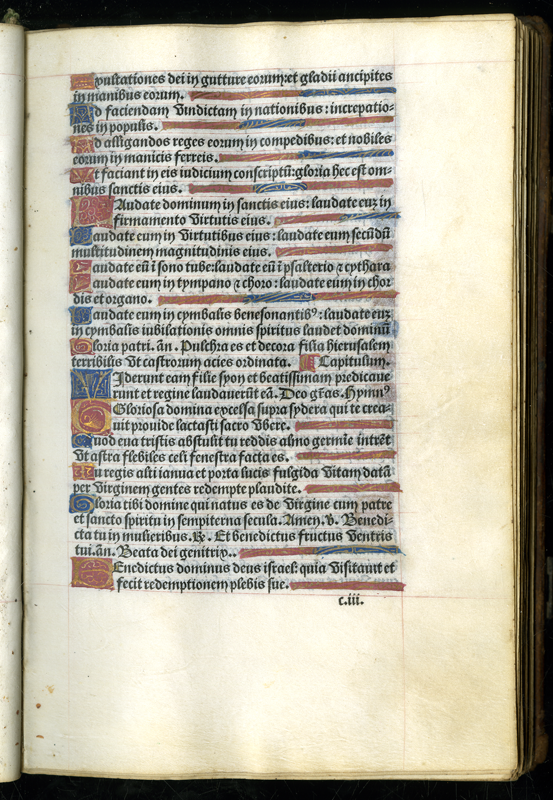 Exultationes dei in gutture eorum:et gladii ancipites
in manibus eorum.
Ad faciendam vindictam in nationibus: increpatio-
nes in populis.
Ad alligandos reges eorum in compedibus: et nobiles
eorum in manicis ferreis.
Vt faciant in eis iudicium conscriptū: gloria hec est om-
nibus sanctis eius.
LAudate dominum in sanctis eius: laudate eum in
firmamento virtutis eius.
Laudate eum in virtutibus eius: laudate eum secūdū
multitudinem magnitudinis eius.
Laudate eū ī sono tube: laudate eū ī psalterio ⁊ cythara
Laudate eum in tympano ⁊ choro: laudate eum in chor
dis et organo.
Laudate eum in cymbalis benesonantibꝰ: laudate eum
in cymbalis iubilationis omnis spiritus laudet dominū
Gloria patri. añ. Pulchra es et decora filia hierusalem
terribilis vt castrorum acies ordinata. Capitulum.
VIderunt eam filie syon et beatissimam predicaue
runt et regine laudauerūt eā. Deo gr̄as. Hymnꝰ
O Gloriosa domina excelsa supra sydera qui te crea-
uit prouide lactasti sacro vbere.
Quod eua tristis abstulit tu reddis almo germīe intrēt
vt astra flebiles celi fenestra facta es.
Tu regis alti ianua et porta lucis fulgida vitam datā
per virginem gentes redempte plaudite.
Gloria tibi domine qui natus es de virgine cum patre
et sancto spiritu in sempiterna secula. Amen. v. Benedi
cta tu in mulieribus. ℟. Et benedictus fructus ventris
tui. añ. Beata dei genitrix.
BEnedictus dominus deus israel: quia visitauit et
fecit redemptionem plebis sue.
c.iii.